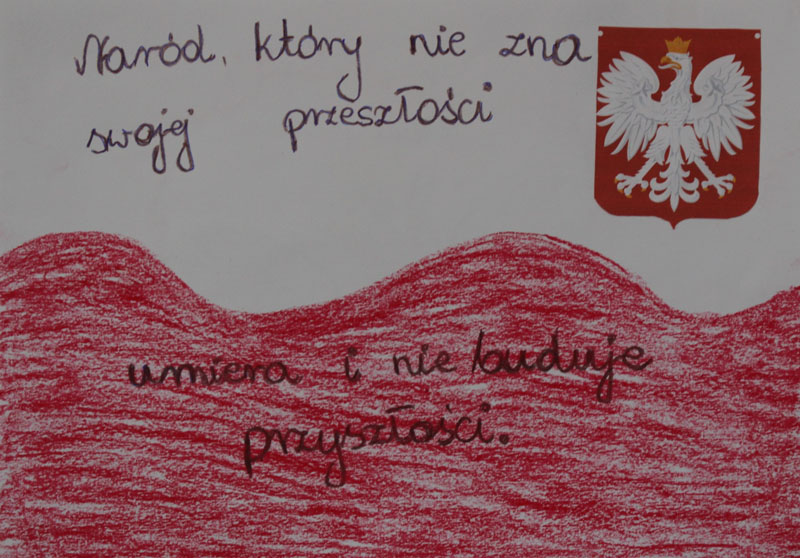 Naród, który nie zna
swojej przeszłości
umiera i nie buduje
przyszłości.